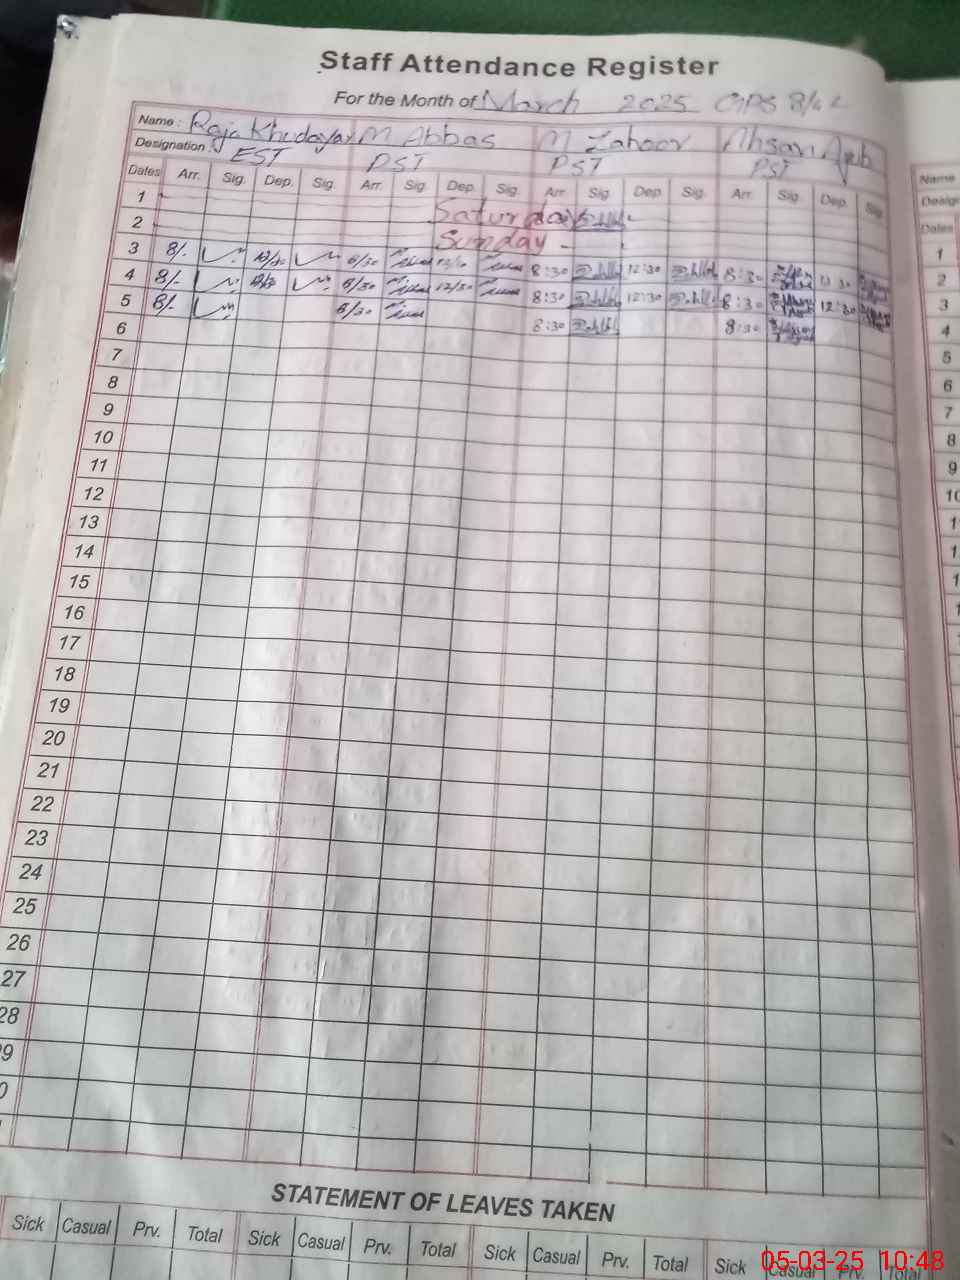 Staff Attendance Register
For the Month of March 2025 GPS 8/4L
Name : Raja Khudayar M Abbas M Zahoor Ahsan Ayub
Designation : EST PST PST PST
Dates Arr. Sig. Dep. Sig. Arr. Sig. Dep. Sig. Arr. Sig. Dep. Sig. Arr. Sig. Dep. Sig.
1 Saturday
2 Sunday
3 8/- 12/30 8/30 8:30 12:30 8:30
4 8/- 8/30 12/30 8:30 12:30 8:30 12:30
5 8/- 8/30 8:30 8:30
6
7
8
9
10
11
12
13
14
15
16
17
18
19
20
21
22
23
24
25
26
27
28
STATEMENT OF LEAVES TAKEN
Sick Casual Prv. Total Sick Casual Prv. Total Sick Casual Prv. Total Sick Casual Prv. Total
Name
Dates
1
2
3
4
5
6
7
8
9
05-03-25 10:48